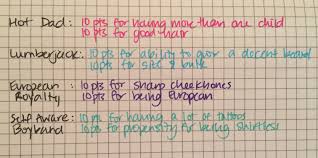 Hot Dad: 10 pts for having more than one child
10 pts for good hair
Lumberjack: 10 pts for ability to grow a decent beard
10 pts for size & bulk
European Royalty: 10 pts for sharp cheekbones
10 pts for being European
Self Aware Boyband: 10 pts for having a lot of tattoos
10 pts for propensity for being shirtless